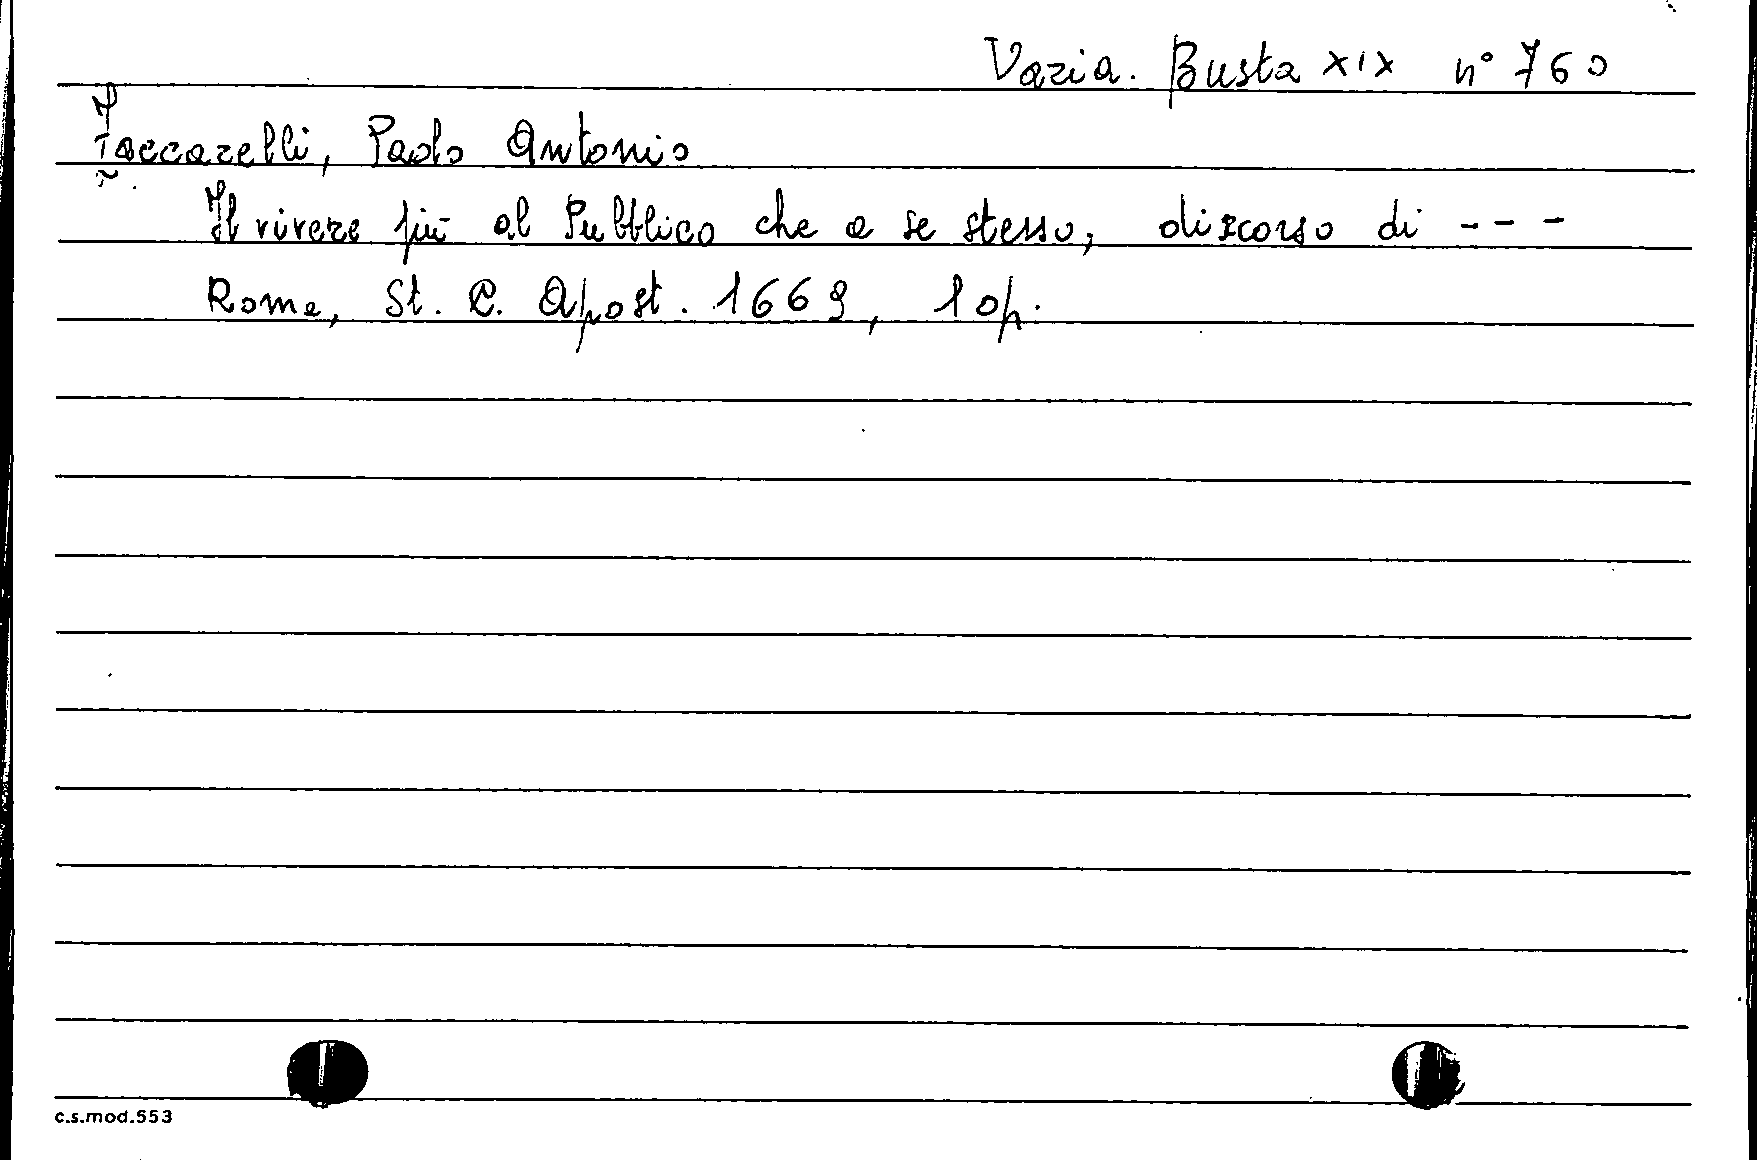 Varia. Busta XIX n° 760
Zaccarelli, Paolo Antonio
Il vivere più al Pubblico che a se stesso, discorso di - - -
Roma, St. C. Apost. 1669, 1 op.
c.s.mod.553